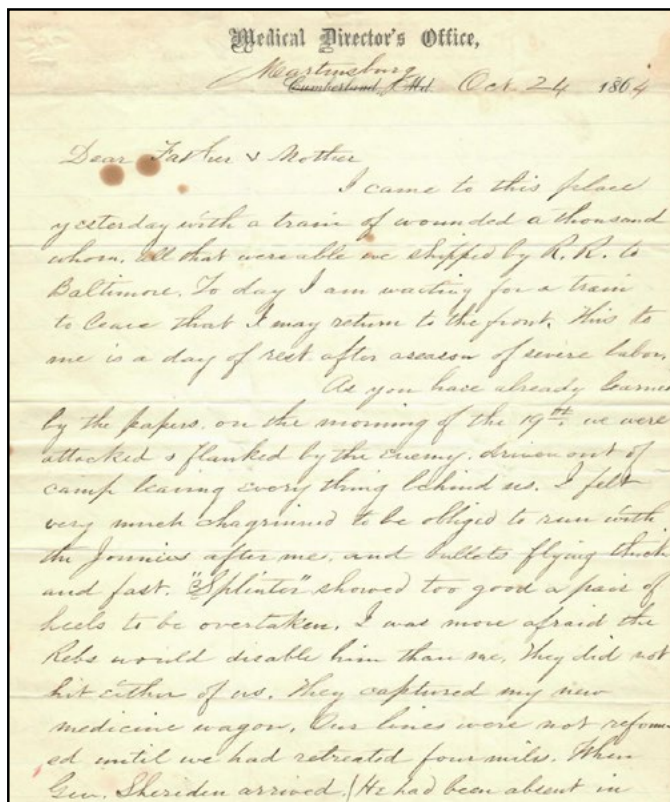 Medical Director's Office,
Martinsburg
Cumberland, Md Oct 24 1864
Dear Father & Mother
I came to this place
yesterday with a train of wounded a thousand
whom, all that were able we shipped by R. R. to
Baltimore. To day I am waiting for a train
to leave that I may return to the front. This to
me is a day of rest after a season of severe labor.
As you have already learned
by the papers, on the morning of the 19th. we were
attacked & flanked by the enemy. driven out of
camp leaving every thing behind us. I felt
very much chagrinned to be obliged to run with
the Jonnies after me, and bullets flying thick
and fast. "Splinter" showed too good a pair of
heels to be overtaken. I was more afraid the
Rebs would disable him than me. They did not
hit either of us. They captured my new
medicine wagon. Our lines were not reform-
ed until we had retreated four miles. When
Gen. Sheriden arrived. (He had been absent in